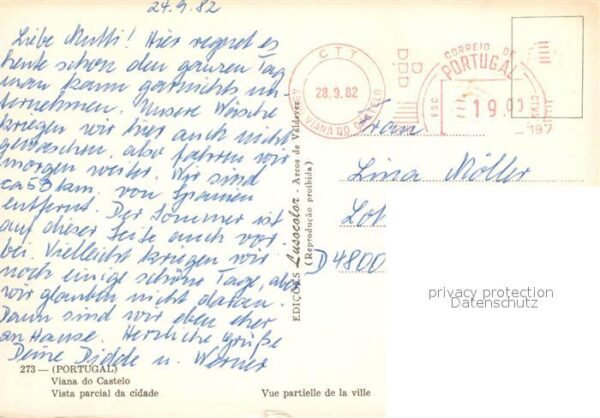 24.9.82
Liebe Mutti! Hier regnet es
heute schon den ganzen Tag
man kann garnichts un-
ternehmen. Unsere Wäsche
kriegen wir hier auch nicht
gewaschen, also fahren wir
morgen weiter. Wir sind
ca 53 km. von Spanien
entfernt. Der Sommer ist
auf dieser Seite auch vor
bei. Vielleicht kriegen wir
noch einige schöne Tage, aber
wir glauben nicht daran.
Dann sind wir eben eher
an Hause. Herzliche Grüße
Deine Didde u. Werner
273 — (PORTUGAL)
Viana do Castelo
Vista parcial da cidade
Vue partielle de la ville
EDIÇÕES Lusocolor - Arcos de Valdevez
(Reprodução proibida)
CTT
28.9.82
VIANA DO CASTELO
CORREIO DE
PORTUGAL
ESC.
19.00
197
Frau
Lina Möller
Lot
D 4800
privacy protection
Datenschutz